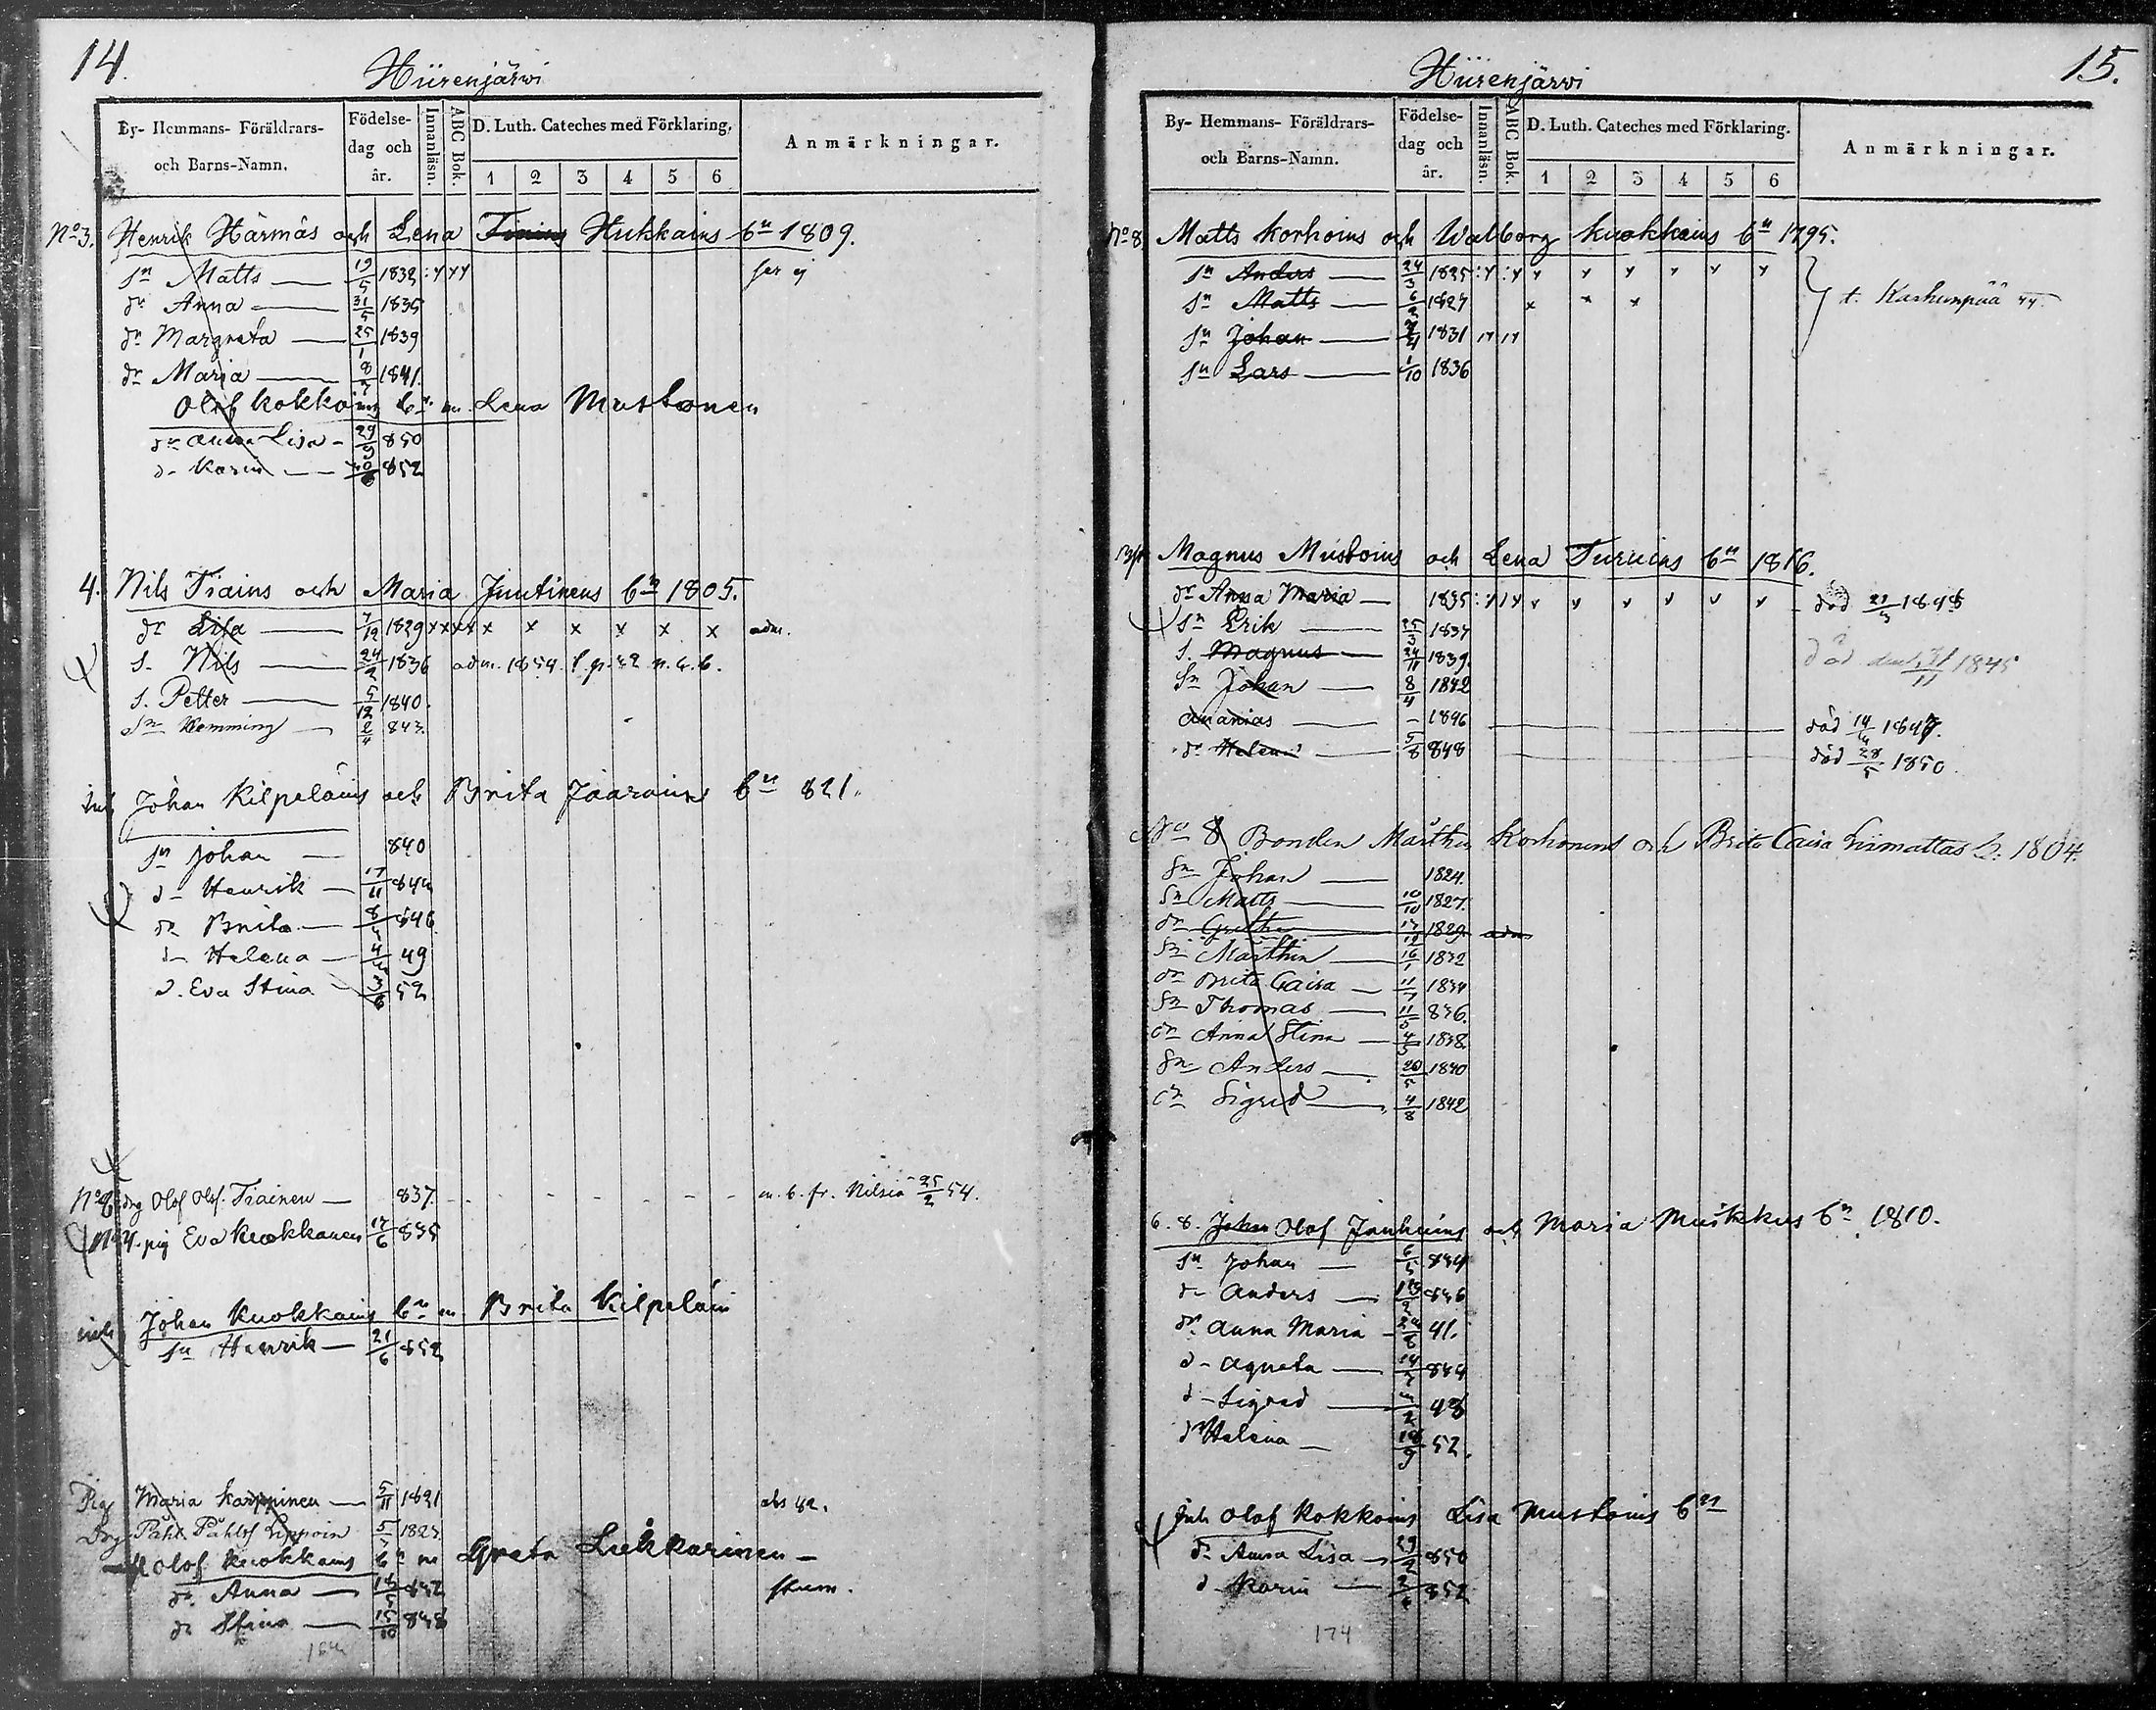 14.
Hiirenjärwi
By- Hemmans- Föräldrars- och Barns-Namn.
Födelse-dag och år.
Innanläsn.
ABC Bok.
D. Luth. Cateches med Förklaring.
1 2 3 4 5 6
Anmärkningar.
No 3. Henrik Härmäs och Lena Hukkains bn 1809.
sn Matts 19/5 1832
dr Anna 31/5 1835
dr Margreta 25/1 1839
dr Maria 1841.
Olof Kokkoins bn m. Lena Mustonen
dr Anna Lisa 29/9 850
d- Karin 852
4. Nils Tiains och Maria Juutinens bn 1805.
dr Lisa 7/12 1829 x x x x x x x x x x adm.
s. Nils 24/2 1836 adm. 1854.
s. Petter 5/12 1840.
sn Hemming 2/4 843.
inh Johan Kilpeläins och Brita Jaarains bn 821.
sn Johan 840
d- Henrik 17/11 844
dr Brita 846
d- Helena 49
d. Eva Stina 3/6 52
drg Olof Olofs. Tiainen 837. m. b. fr. Nilsiä 25/2 54.
pig Eva Kuokkanen 17/6 835
inh Johan Kuokkains bn m Brita Kilpeläin
sn Henrik 21/6 852
Pig Maria Karppinen 5/11 1821
Drg Påhl Påhlsf Lippoin
Olof Kuokkains bn m Greta Lukkarinen
dr. Anna 842 stum.
dr Stina 15/10 848
15.
Hiirenjärvi
By- Hemmans- Föräldrars- och Barns-Namn.
Födelse-dag och år.
Innanläsn.
ABC Bok.
D. Luth. Cateches med Förklaring.
1 2 3 4 5 6
Anmärkningar.
No 8 Matts Korhoins och Walborg Kuokkains bn 1795.
sn Anders 24/3 1825
sn Matts 6/2 1827 x x x t. Karhunpää 44.
sn Johan 1831
sn Lars 1/10 1836
Magnus Mustoins och Lena Turuins bn 1816.
dr Anna Maria 1835 död 1848
sn Erik 25/3 1837
s. Magnus 24/11 1839. död 1845
sn Johan 8/4 1842
Ananias - 1846 död 1847.
dr Helena 5/8 848 död 28/5 1850.
No 8 Bonden Mårthen Korhonens och Brita Caisa Liimattas b. 1804.
Sn Johan 1824.
Sn Matts 10/10 1827.
dr Gretha 17/12 1829. adm
Sn Mårthin 16/1 1832
dr Brita Caisa 11/7 1834
Sn Thomas 836.
dr Anna Stina 1838.
Sn Anders 20/5 1840
dr Sigrid 4/8 1842
6. 8. Johan Olof Jauhains och Maria Mustikkas bn 1810.
sn Johan 6/5 834
d- Anders 836
dr Anna Maria 41.
d- Agneta 844
d- Sigrid 48
dr Helena 52.
Inh Olof Kokkoins Lisa Mustoins bn
dr Anna Lisa 850
d Karin 852
174